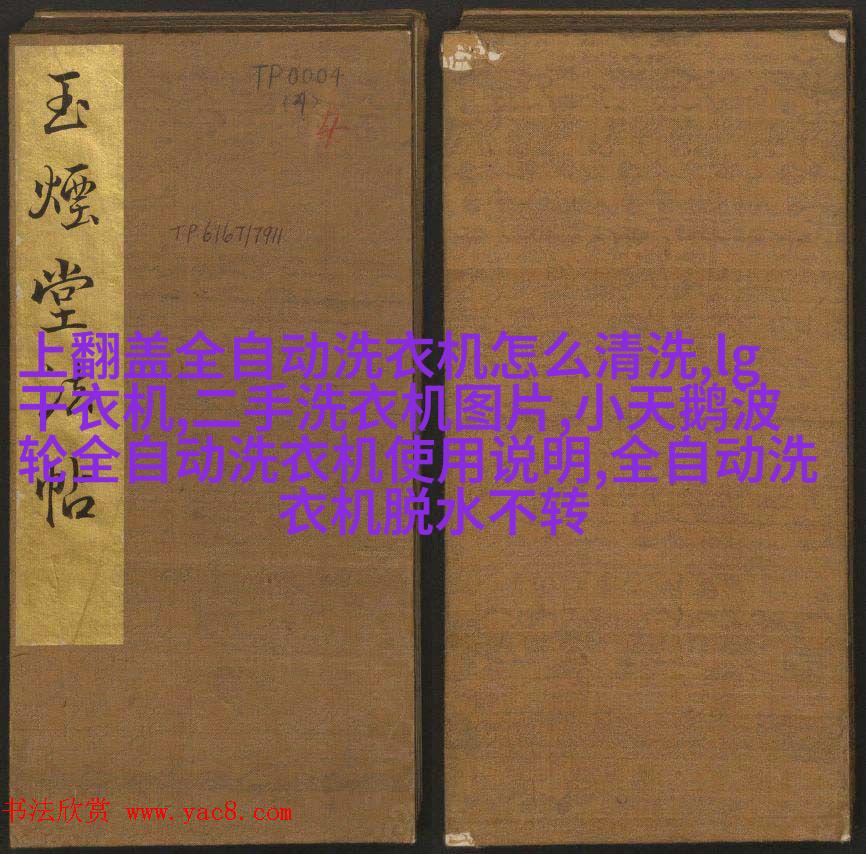 玉煙堂法帖
TP0004
(4)
4
TP6167/7911
上翻盖全自动洗衣机怎么清洗,lg
干衣机,二手洗衣机图片,小天鹅波
轮全自动洗衣机使用说明,全自动洗
衣机脱水不转
书法欣赏 www.yac8.com